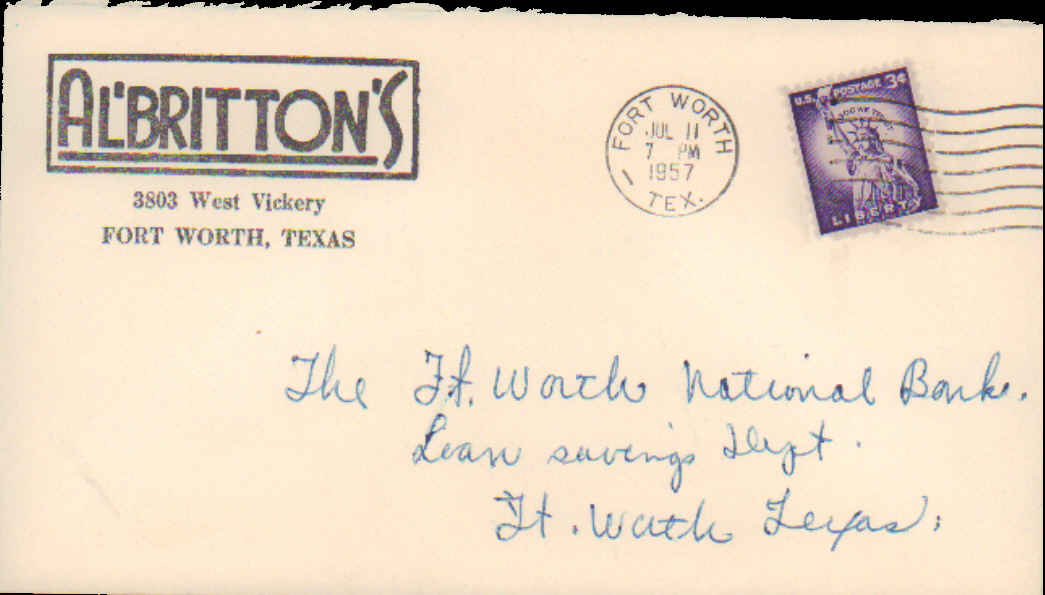 AL'BRITTON'S
3803 West Vickery
FORT WORTH, TEXAS
FORT WORTH
JUL 11
7 PM
1957
TEX.
U.S. POSTAGE 3¢
IN GOD WE TRUST
LIBERTY
The Ft. Worth National Bank.
Loan savings Dept.
Ft. Worth Texas.